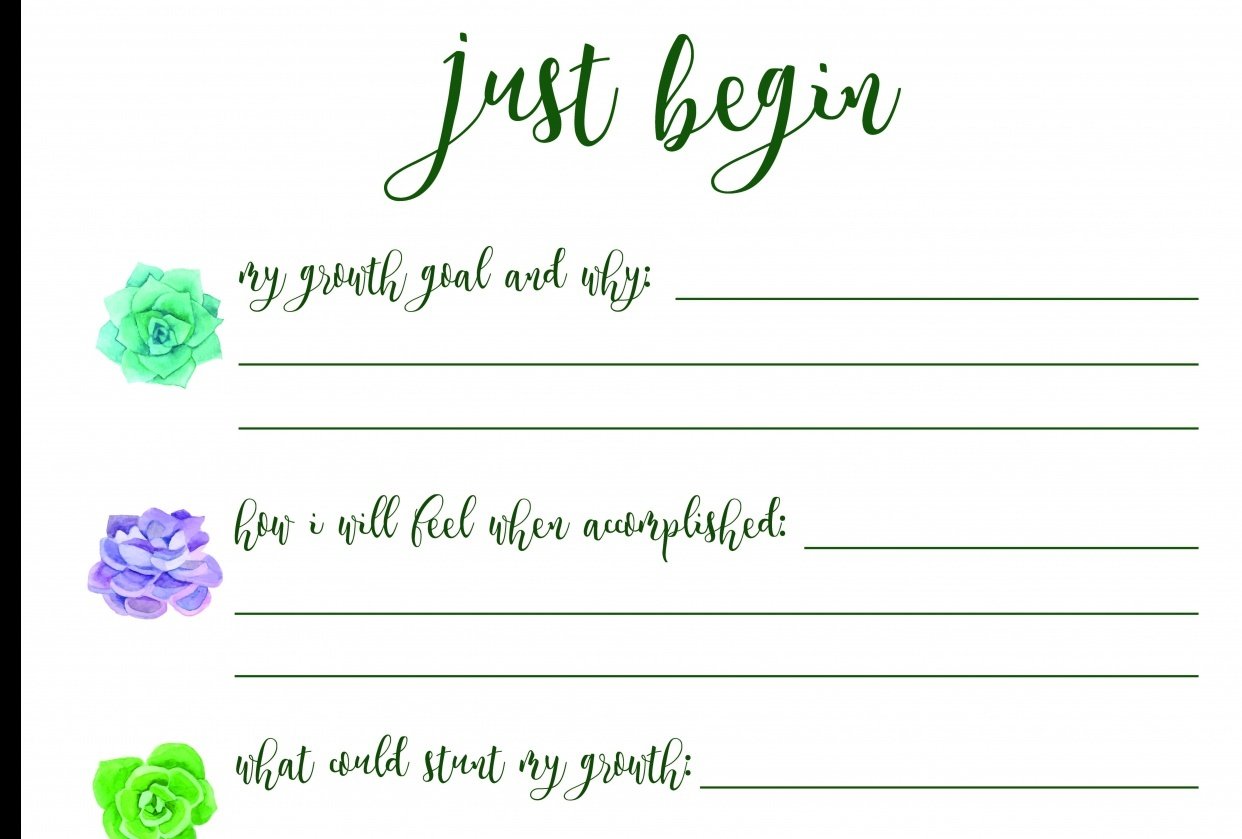 just begin
my growth goal and why:
how i will feel when accomplished:
what could stunt my growth: